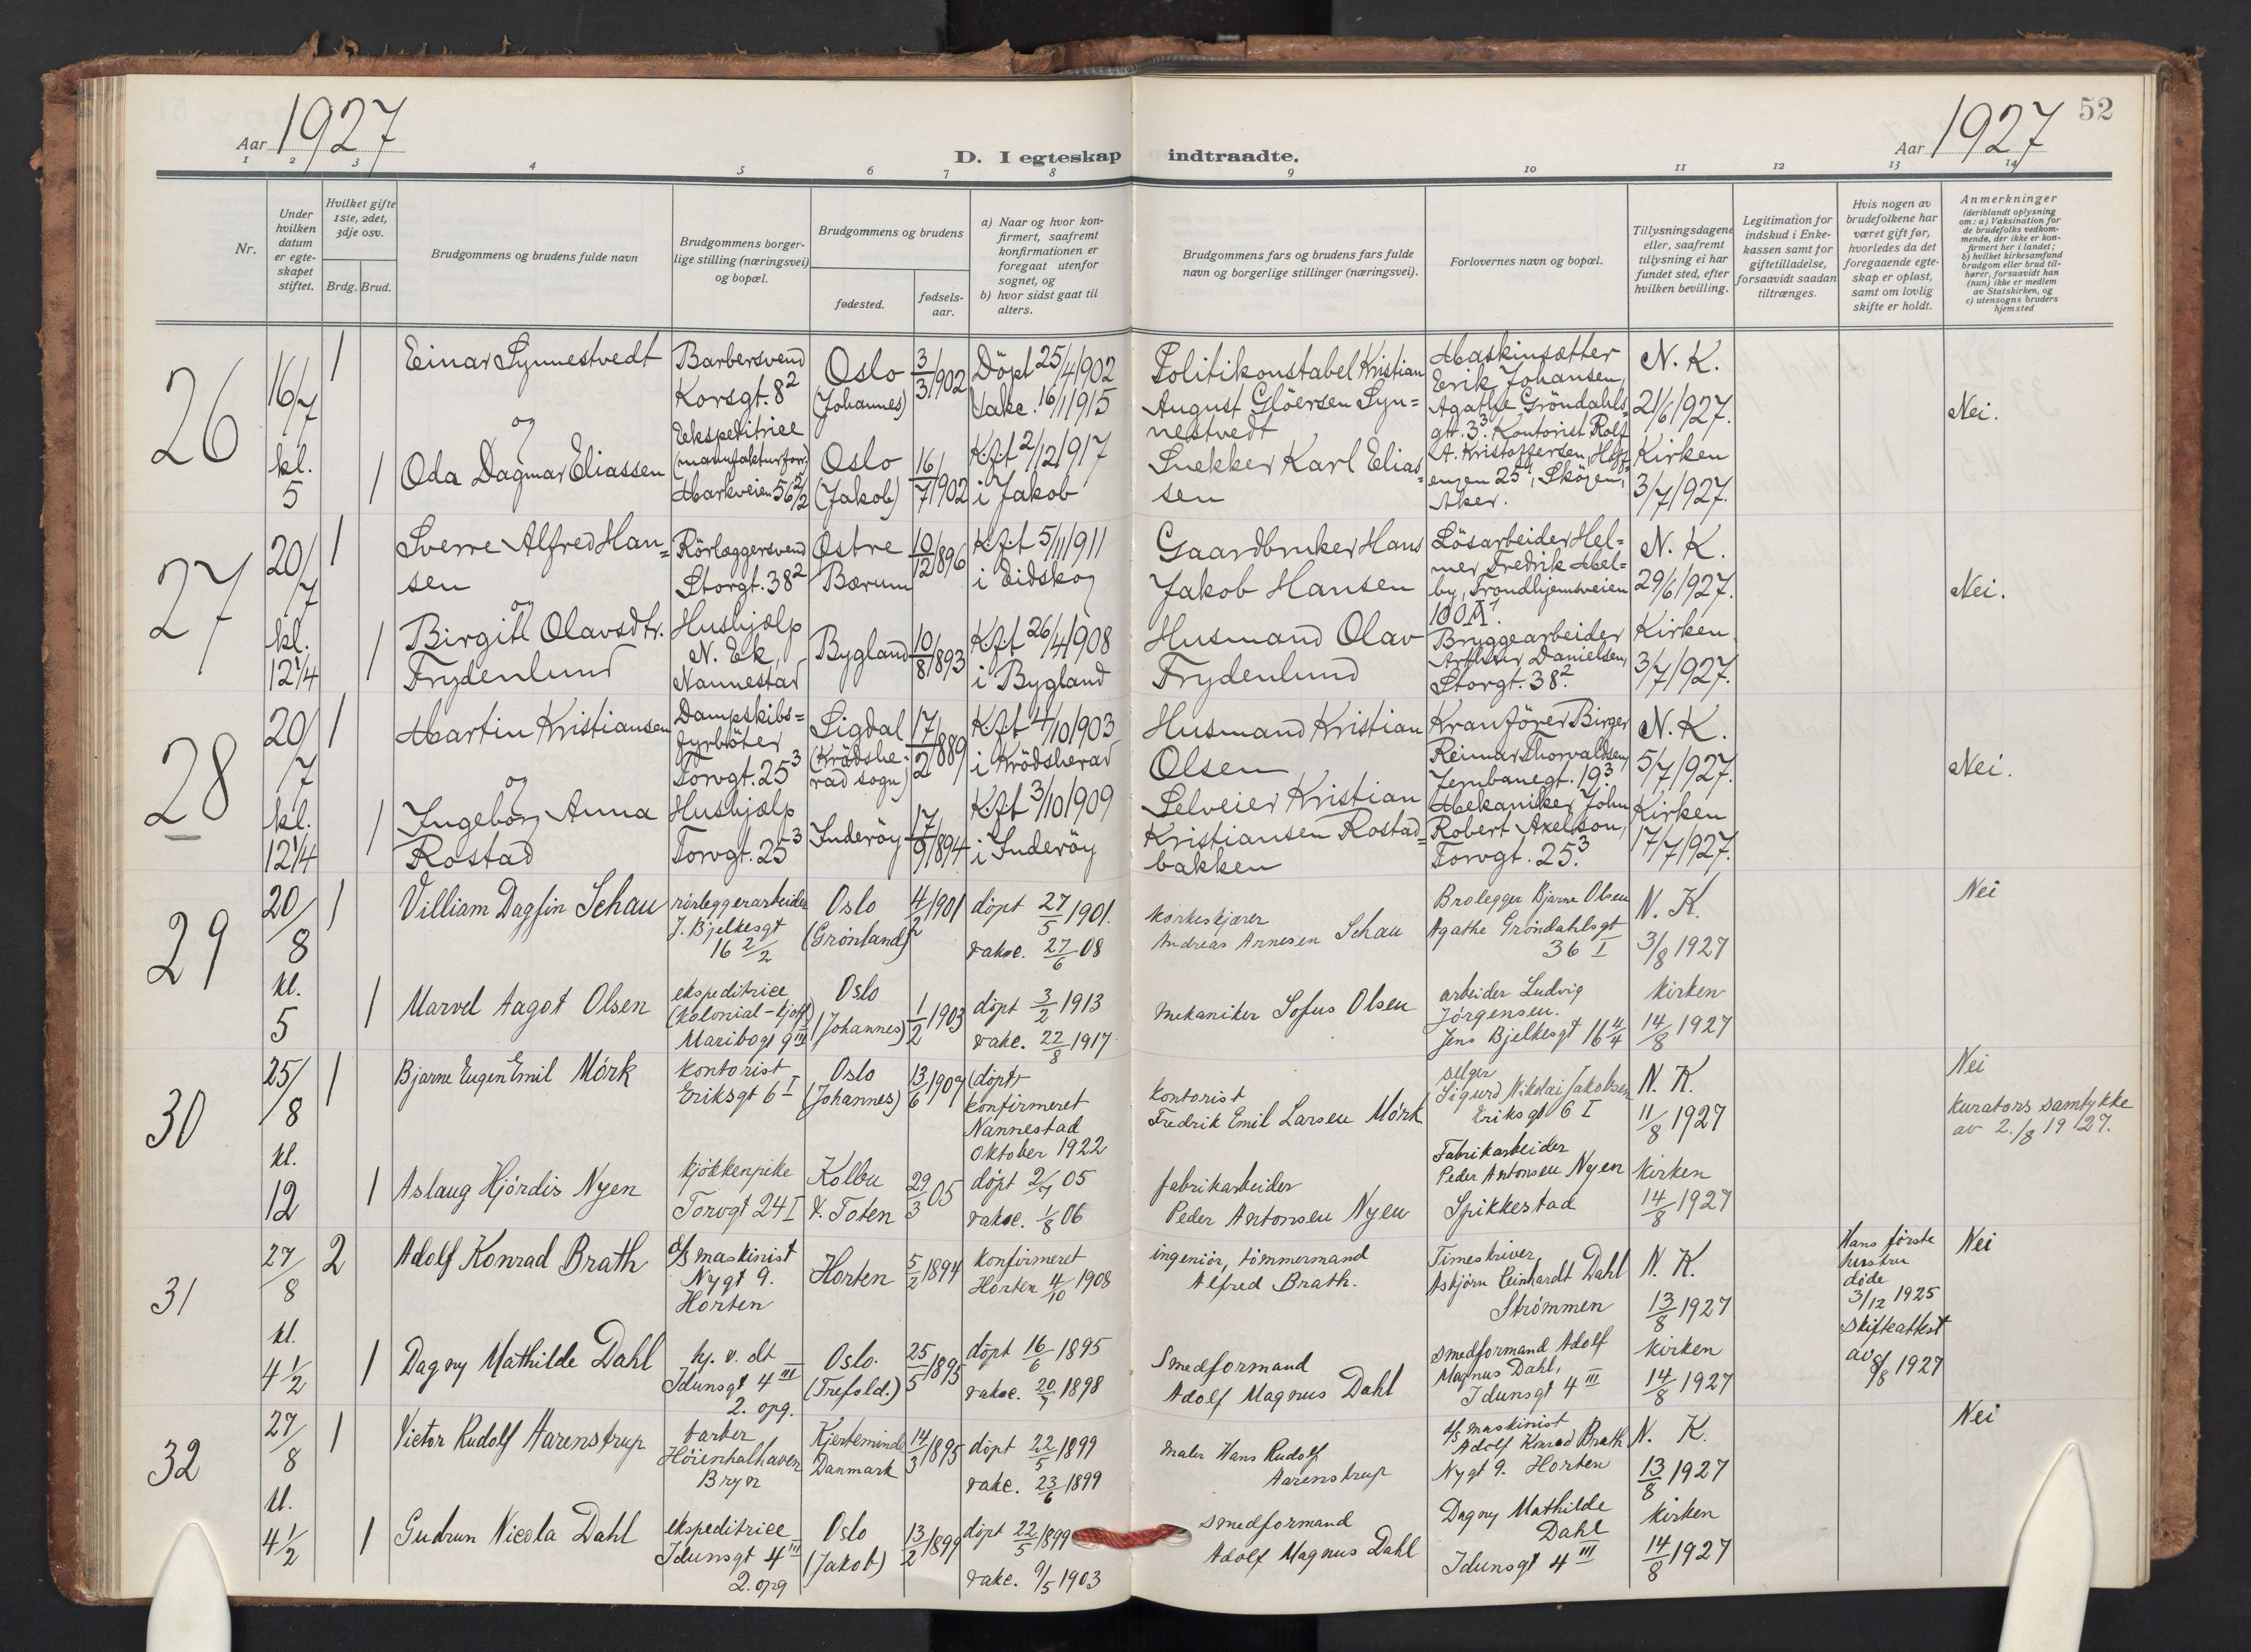 Aar 1927
D. I egteskap indtraadte.
Aar 1927
52
1 2 3 4 5 6 7 8 9 10 11 12 13 14
Nr.
Under hvilken datum er egteskapet stiftet.
Hvilket gifte 1ste, 2det, 3dje osv.
Brdg. Brud.
Brudgommens og brudens fulde navn
Brudgommens borgerlige stilling (næringsvei) og bopæl.
Brudgommens og brudens
fødested.
fødselsaar.
a) Naar og hvor konfirmert, saafremt konfirmationen er foregaat utenfor sognet, og
b) hvor sidst gaat til alters.
Brudgommens fars og brudens fars fulde navn og borgerlige stillinger (næringsvei).
Forlovernes navn og bopæl.
Tillysningsdagene eller, saafremt tillysning ei har fundet sted, efter hvilken bevilling.
Legitimation for indskud i Enkekassen samt for giftetilladelse, forsaavidt saadan tiltrænges.
Hvis nogen av brudefolkene har været gift før, hvorledes da det foregaaende egteskap er opløst, samt om lovlig skifte er holdt.
Anmerkninger
(deriblandt oplysning om: a) Vaksination for de brudefolks vedkommende, der ikke er konfirmert her i landet;
b) hvilket kirkesamfund brudgom eller brud tilhører, forsaavidt han (hun) ikke er medlem av Statskirken, og
c) utensogns bruders hjemsted
26
16/7 kl. 5
1
Einar Synnestvedt
og
Barbersvend
Korsgt. 8²
Oslo
(Johannes)
3/3 1902
Döpt 25/4 1902
Vakc. 16/1 1915
Politikonstabel Kristian
August Glöersen Syn=
nestvedt
Maskinsætter
Erik Johansen,
Agathe Gröndahls=
gt. 3³. Kontorist Rolf
A. Kristoffersen,
25¹, Sköyen,
Aker.
N. K.
21/6 1927.
Kirken
3/7 1927.
Nei.
1
Oda Dagmar Eliassen
Ekspeditrice
(manufakturforr.)
Markveien 56 2/2
Oslo
(Jakob)
16/7 1902
Kft 2/12 1917
i Jakob
Snekker Karl Elias=
sen
27
20/7 kl. 12 1/4
1
Sverre Alfred Han=
sen
og
Rörlæggersvend
Storgt. 38²
Östre
Bærum
10/12 1896
Kft 5/11 1911
i Eidskog
Gaardbruker Hans
Jakob Hansen
Lösarbeider Hel=
mer Fredrik Mel=
by, Trondhjemsveien
100 A¹.
Bryggearbeider
Arthur Danielsen,
Storgt. 38².
N. K.
29/6 1927.
Kirken
3/7 1927.
Nei.
1
Birgit Olavsdtr.
Frydenlund
Hushjælp
N. Ek,
Nannestad
Bygland
10/8 1893
Kft 26/4 1908
i Bygland
Husmand Olav
Frydenlund
28
20/7 kl. 12 1/4
1
Martin Kristiansen
og
Dampskibs=
fyrböter
Torvgt. 25³
Sigdal
(Krödshe=
rad sogn)
17/2 1889
Kft 4/10 1903
i Krödsherad
Husmand Kristian
Olsen
Kranförer Birger
Reimar Thorvaldsen,
Jernbanegt. 19³.
Mekaniker John
Robert Axelsson,
Torvgt. 25³.
N. K.
5/7 1927.
Kirken
17/7 1927.
Nei.
1
Ingeborg Anna
Rostad
Hushjælp
Torvgt. 25³
Inderöy
17/9 1894
Kft 3/10 1909
i Inderöy
Selveier Kristian
Kristiansen Rostad=
bakken
29
20/8 kl. 5
1
Villiam Dagfin Schau
rörleggerarbeider
J. Bjelkesgt
16 2/2
Oslo
(Grønland)
4/2 1901
döpt 27/5 1901.
vakse. 27/6 08
korkeskjærer
Andreas Arnesen Schau
Brolegger Bjarne Olsen
Agathe Grøndahlsgt
36 I
N. K.
3/8 1927
Nei
1
Marvel Aagot Olsen
ekspeditrice
(kolonial-kjött)
Maribogt 9 III
Oslo
(Johannes)
1/2 1903
döpt 3/2 1913
vakc. 22/8 1917
mekaniker Sofus Olsen
arbeider Ludvig
Jörgensen.
Jens Bjelkesgt 16 4/4
kirken
14/8 1927
30
25/8 kl. 12
1
Bjarne Eugen Emil Mörk
kontorist
Eriksgt 6 I
Oslo
(Johannes)
13/6 1907
(döpt)
konfirmeret
Nannestad
Oktober 1922
kontorist
Fredrik Emil Larsen Mörk
selger
Sigurd Nikolai Jakobsen
Eriksgt 6 I
N. K.
11/8 1927
Nei
kurators samtykke
av 2./8 1927.
1
Aslaug Hjördis Nyen
kjökkenpike
Torvgt 24 I
Kolbu
V. Toten
29/3 05
döpt 2/7 05
vakse. 1/8 06
fabrikarbeider
Peder Antonsen Nyen
Fabrikarbeider
Peder Antonsen Nyen
Spikkestad
kirken
14/8 1927
31
27/8 kl. 4 1/2
2
Adolf Konrad Brath
d/s maskinist
Nygt 9.
Horten
Horten
5/2 1894
konfirmeret
Horten 4/10 1908
ingeniör, tömmermand
Alfred Brath.
Timeskriver
Asbjörn Leinhardt Dahl
Strömmen
N. K.
13/8 1927
Hans förste
hustru
döde
3/12 1925
skifteattest
av 8/8 1927
Nei
1
Dagny Mathilde Dahl
hj. v. dt
Idunsgt 4 III
2. opg.
Oslo.
(Trefold.)
25/5 1895
döpt 16/6 1895
vakse. 20/7 1898
Smedformand
Adolf Magnus Dahl
smedformand Adolf
Magnus Dahl,
Idunsgt 4 III
kirken
14/8 1927
32
27/8 kl. 4 1/2
1
Victor Rudolf Aarenstrup
barber
Höienhalhaven
Bryn
Kjerteminde
Danmark
14/3 1895
döpt 22/5 1899
vakc. 23/6 1899
maler Hans Rudolf
Aarenstrup
d/s maskinist
Adolf Konrad Brath
Nygt 9. Horten
N. K.
13/8 1927
Nei
1
Gudrun Nicola Dahl
ekspeditrice
Idunsgt 4 III
2. opg
Oslo
(Jakob)
13/2 1899
döpt 22/5 1899
vakc. 9/5 1903
smedformand
Adolf Magnus Dahl
Dagny Mathilde
Dahl
Idunsgt 4 III
kirken
14/8 1927